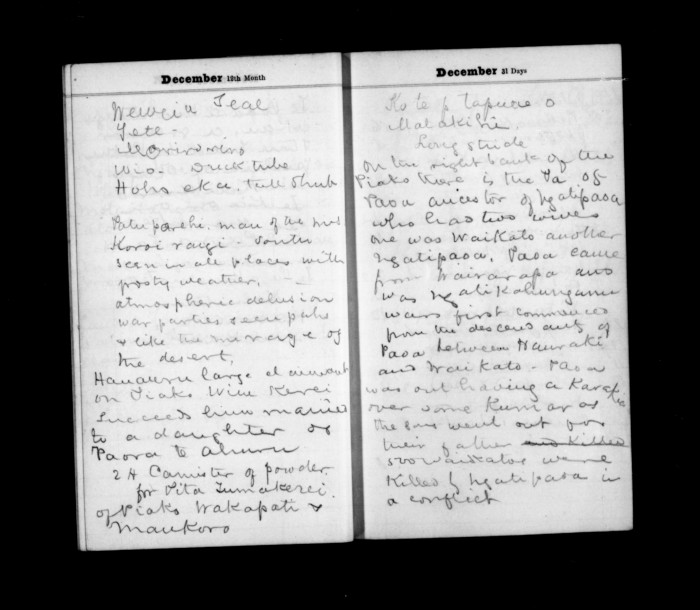 December 12th Month
Teal
Tete -
Wio - Duck tribe
tall Shrub
Patu parehe. man of the mist
Koroi rangi - South
Seen in all places with
frosty weather,
atmospheric delusion
war parties seen pahs
& like the mirage of
the desert,
Hanauru large claimant
on Piako Wini Kerei
Succeeds him married
to a daughter of
Paora Te Ahuru
2 H Canister of powder
for Pita Tumakerei.
of Piako Wakapati &
Maukoro
December 31 Days
Ko te tapuae o
Matakihi
Long stride
On the right bank of the
Piako there is the Pa of
Paoa ancestor of Ngatipaoa
who has two wives
one was Waikato another
Ngatipaoa. Paoa came
from Wairarapa and
was Ngatikahungunu
wars first commenced
from the descendants of
Paoa between Hauraki
and Waikato - Paoa
was out having a Karakia
over some Kumaras
the sons went out for
their father and Killed
500 Waikatos were
Killed by Ngatipaoa in
a conflict